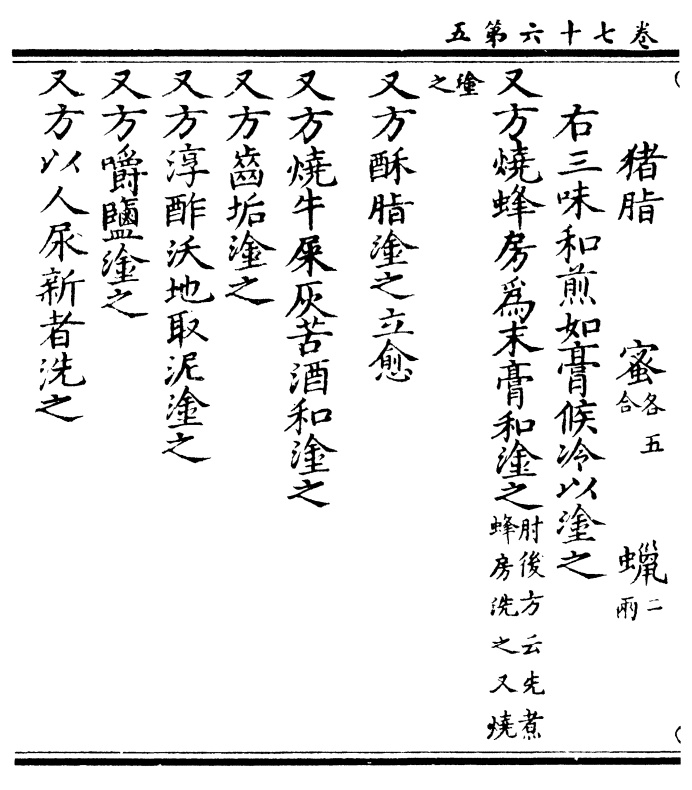 卷七十六第五
猪脂　蜜各五合　蝋二兩
右三味和煎如膏候冷以塗之
又方燒蜂房爲末膏和塗之肘後方云先煮蜂房洗之又燒
塗之
又方酥脂塗之立愈
又方燒牛屎灰苦酒和塗之
又方齒垢塗之
又方淳酢沃地取泥塗之
又方嚼鹽塗之
又方以人尿新者洗之